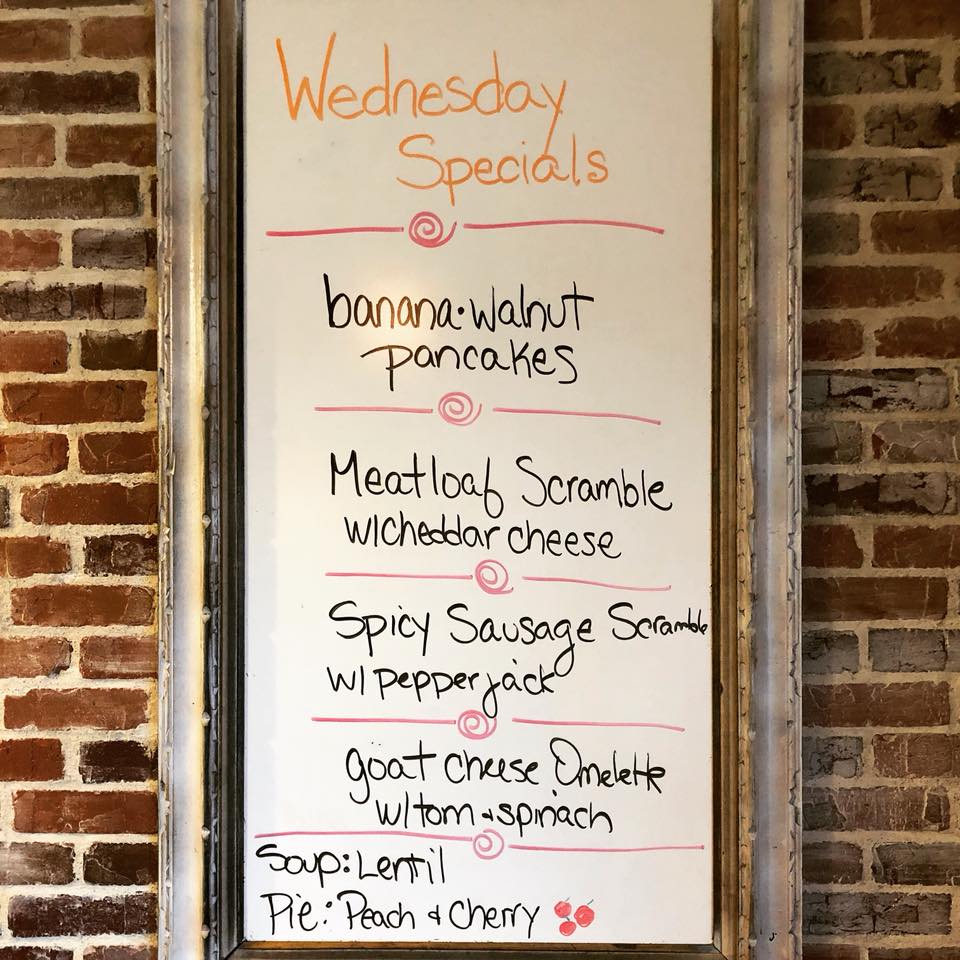 Wednesday
Specials
banana·walnut
pancakes
Meatloaf Scramble
w/Cheddar cheese
Spicy Sausage Scramble
w/ pepperjack
goat cheese Omelette
w/tom + spinach
Soup: Lentil
Pie: Peach & Cherry